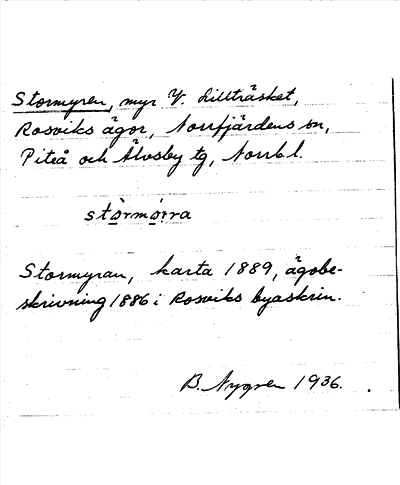 Stormyren, myr V. Lillträsket,
Rosviks ägor, Norrfjärdens sn,
Piteå och Älvsby tg, Norrb.l.
stòrmọrra
Stormyran, karta 1889, ägobe-
skrivning 1886 i Rosviks byaskrin.
B. Nygren 1936.